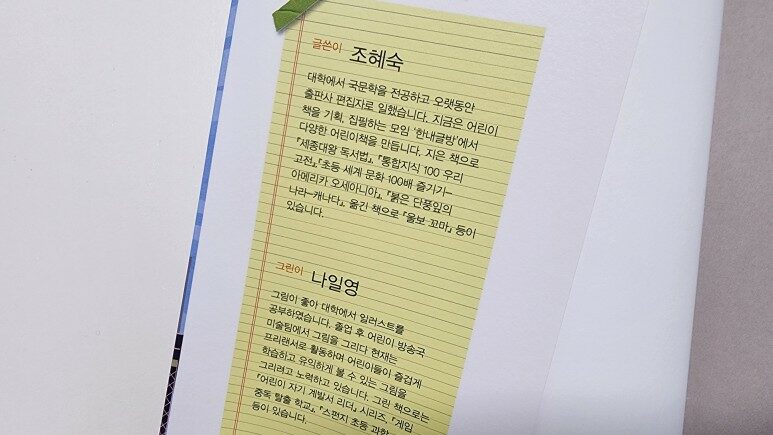 글쓴이 조혜숙
대학에서 국문학을 전공하고 오랫동안
출판사 편집자로 일했습니다. 지금은 어린이
책을 기획, 집필하는 모임 '한내글방'에서
다양한 어린이책을 만듭니다. 지은 책으로
『세종대왕 독서법』, 『통합지식 100 우리
고전』,『초등 세계 문화 100배 즐기기–
아메리카 오세아니아』, 『붉은 단풍잎의
나라–캐나다』, 옮긴 책으로 『울보 꼬마』 등이
있습니다.
그린이 나일영
그림이 좋아 대학에서 일러스트를
공부하였습니다. 졸업 후 어린이 방송국
미술팀에서 그림을 그리다 현재는
프리랜서로 활동하며 어린이들이 즐겁게
학습하고 유익하게 볼 수 있는 그림을
그리려고 노력하고 있습니다. 그린 책으로는
『어린이 자기 계발서 리더』 시리즈, 『게임
중독 탈출 학교』, 『스펀지 초등 과학
등이 있습니다.